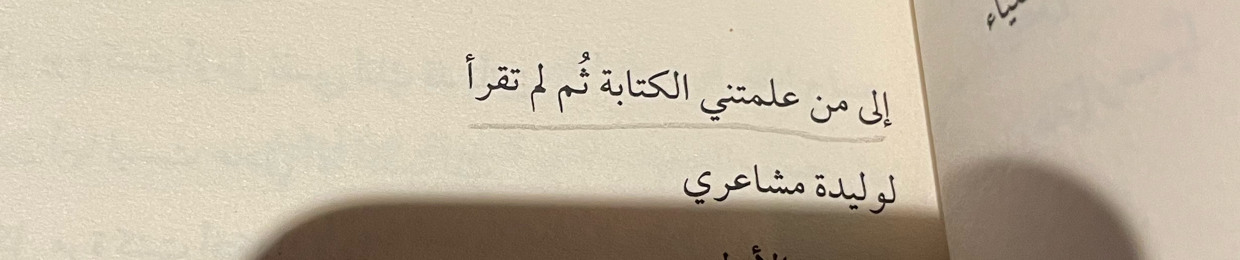 إلى من علمتني الكتابة ثُم لم تقرأ
لوليدة مشاعري